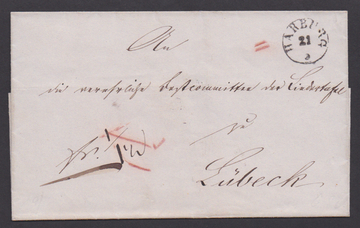 An
HARBURG
21
die verehrliche Festcommittee der Liedertafel
zu
Lübeck.